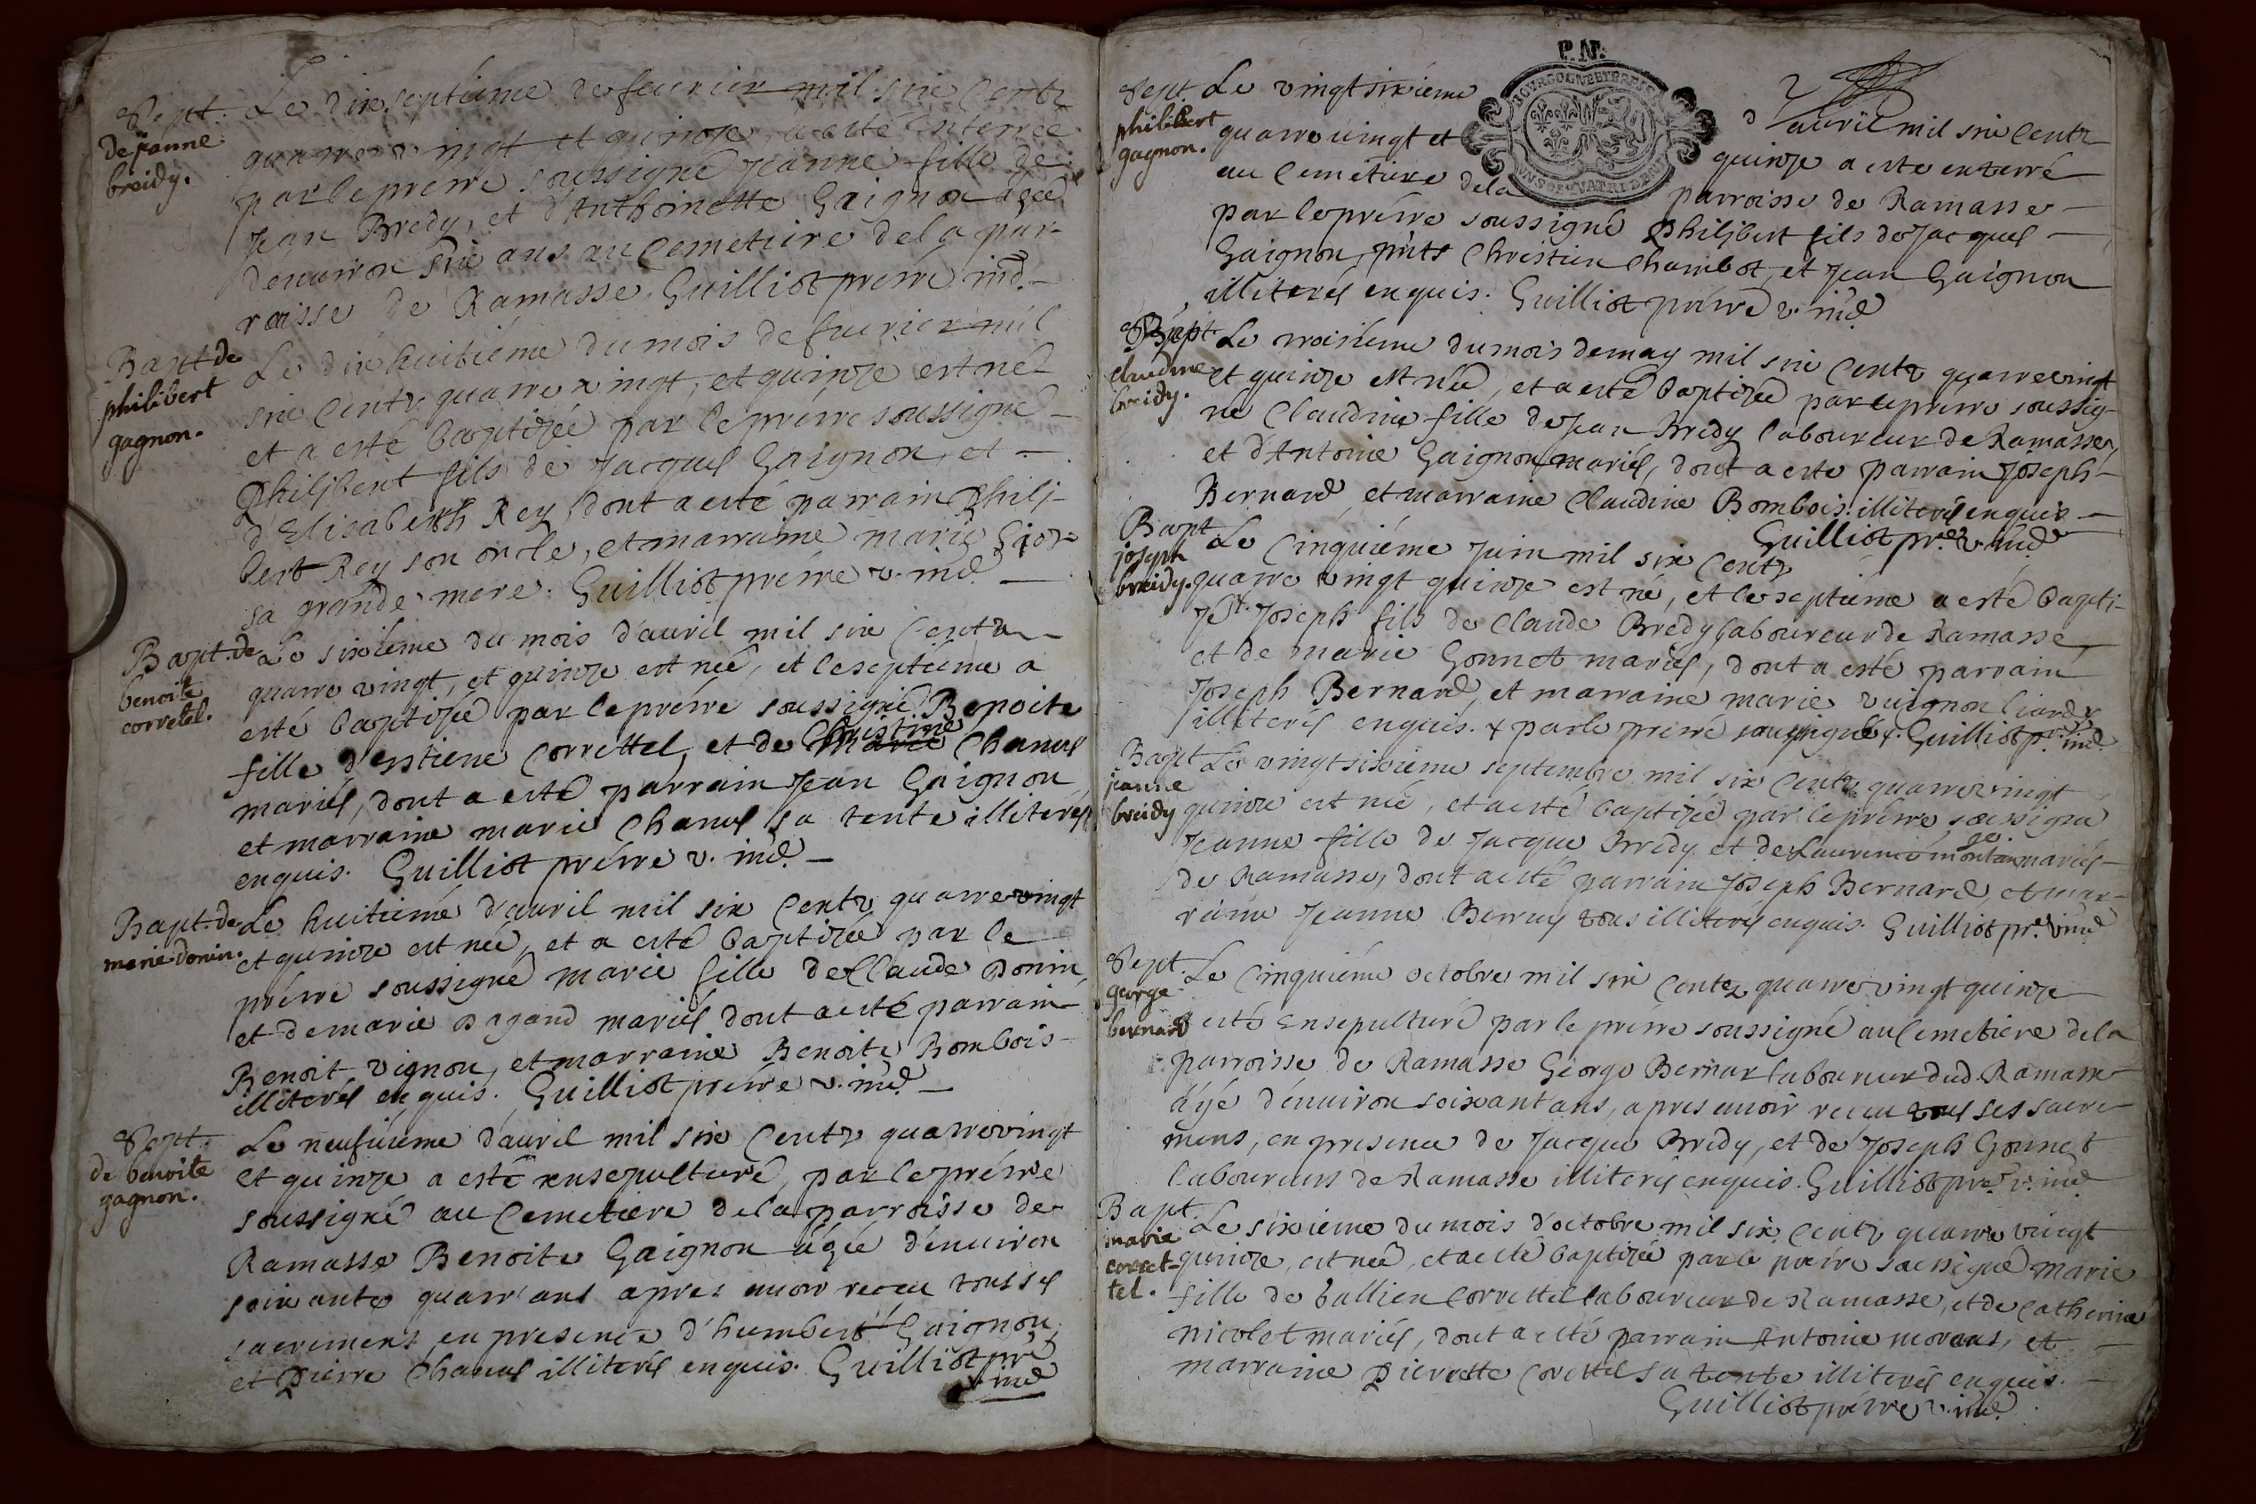 Sept.
de jeanne
breidy.
Le dixseptiéme de feurier mil six Centz
quatre vingt et quinze, a esté Enterrée
par le prétre soussigné Jeanne fille de
Jean Bredy, et d'Anthoinette Gaignon ágée
d'enuiron six ans au Cemetiere de la par-
roisse de Ramasse. Guilliot prétre ind.
Bapt. de
philibert
gagnon.
Le dix huitiéme du mois de feurier mil
six Centz quatre vingt, et quinze est né
et a esté baptizée par le prétre soussigné
Philibert fils de Jacques Gaignon, et
d'Elisabeth Rey, dont a esté parrain Phili-
bert Rey son oncle, et marraine marie
sa grande mere. Guilliot prétre v. ind.
Bapt. de
benoite
corretel.
Le sixiéme du mois d'auril mil six Centz
quatre vingt, et quinze est née, et le septiéme a
esté baptizée par le prétre soussigné Benoite
fille d'estiene Correttel, et de Christine Chanel
mariés, dont a esté parrain Jean Gaignon
et marraine marie Chanel sa tente illiterés
enquis. Guilliot prétre v. ind.
Bapt. de
marie donin.
Le huitiéme d'auril mil six Centz quatre vingt
et quinze est née, et a esté baptizée par le
prétre soussigné marie fille de Claude Donin
et de marie Dagand mariés dont a esté parrain
Benoit vignon, et marraine Benoite Bombois
illiterés enquis. Guilliot prétre v. ind.
Sept.
de benoite
gagnon.
Le neufuiéme d'auril mil six Centz quatre vingt
et quinze a esté ensepulturé, par le prétre
soussigné au Cemetiere de la parroisse de
Ramasse Benoite Gaignon ágée d'enuiron
soixante quatr'ans apres auoir receu tous ses
sacremens, en presence d'humbert Gaignon,
et Pierre Chanel illiterés enquis. Guilliot pre
v. ind
P.N.
Sept.
philibert
gagnon.
Le vingtsixiéme d'auril mil six Centz
quatre vingt et quinze a esté enterré
au Cemetiere de la parroisse de Ramasse
par le prétre soussigné Philibert fils de Jacques
Gaignon, pnts Christien Chambot, et Jean Gaignon
illiterés enquis. Guilliot prétre v. ind
Bapt.
claudine
breidy.
Le troisiéme du mois de may mil six Centz quatre vingt
et quinze est née, et a esté baptizée par le prétre soussig-
né Claudine fille de Jean Bredy laboureur de Ramasse
et d'Antoine Gaignon mariés, dont a esté parrain Joseph
Bernard, et marraine Claudine Bombois illiterés enquis
Guilliot pre v. ind
Bapt.
joseph
breidy.
Le Cinquiéme Juin mil six Centz
quatre vingt quinze est né, et le septiéme a esté bapti-
zé Joseph fils de Claude Bredy laboureur de Ramasse,
et de marie Gonnet mariés, dont a esté parrain
Joseph Bernard, et marraine marie vuignon
illiterés enquis. + par le prétre soussigné +. Guilliot p. ind
Bapt.
jeanne
breidy
Le vingtsixiéme septembre mil six Centz quatre vingt
quinze est née, et a esté baptizée par le prétre soussigné
Jeanne fille de Jacque Bredy et de Laurence mariés
de Ramasse, dont a esté parrain Joseph Bernard, et mar-
raine Jeanne tous illiterés enquis. Guilliot pre. v. ind
Sept.
george
bernard
Le Cinquiéme octobre mil six Centz quatre vingt quinze
a esté Ensepulturé par le prétre soussigné au Cemetiere de la
parroisse de Ramasse George Bernar laboureur dud. Ramasse
ágé d'enuiron soixant ans, apres auoir receu tous ses sacre
mens, en presence de Jacque Bredy, et de Joseph Gonnet
laboureurs de Ramasse illiterés enquis. Guilliot pre. v. ind
Bapt.
marie
corret-
tel.
Le sixiéme du mois d'octobre mil six Centz quatre vingt
quinze, est née, et a esté baptizée par le prétre soussigné Marie
fille de Correttel laboureur de Ramasse, et de Catherine
Nicolet mariés, dont a esté parrain Antoine et
marraine Pierrette Corettel sa tente illiterés enquis.
Guilliot prétre v. ind.